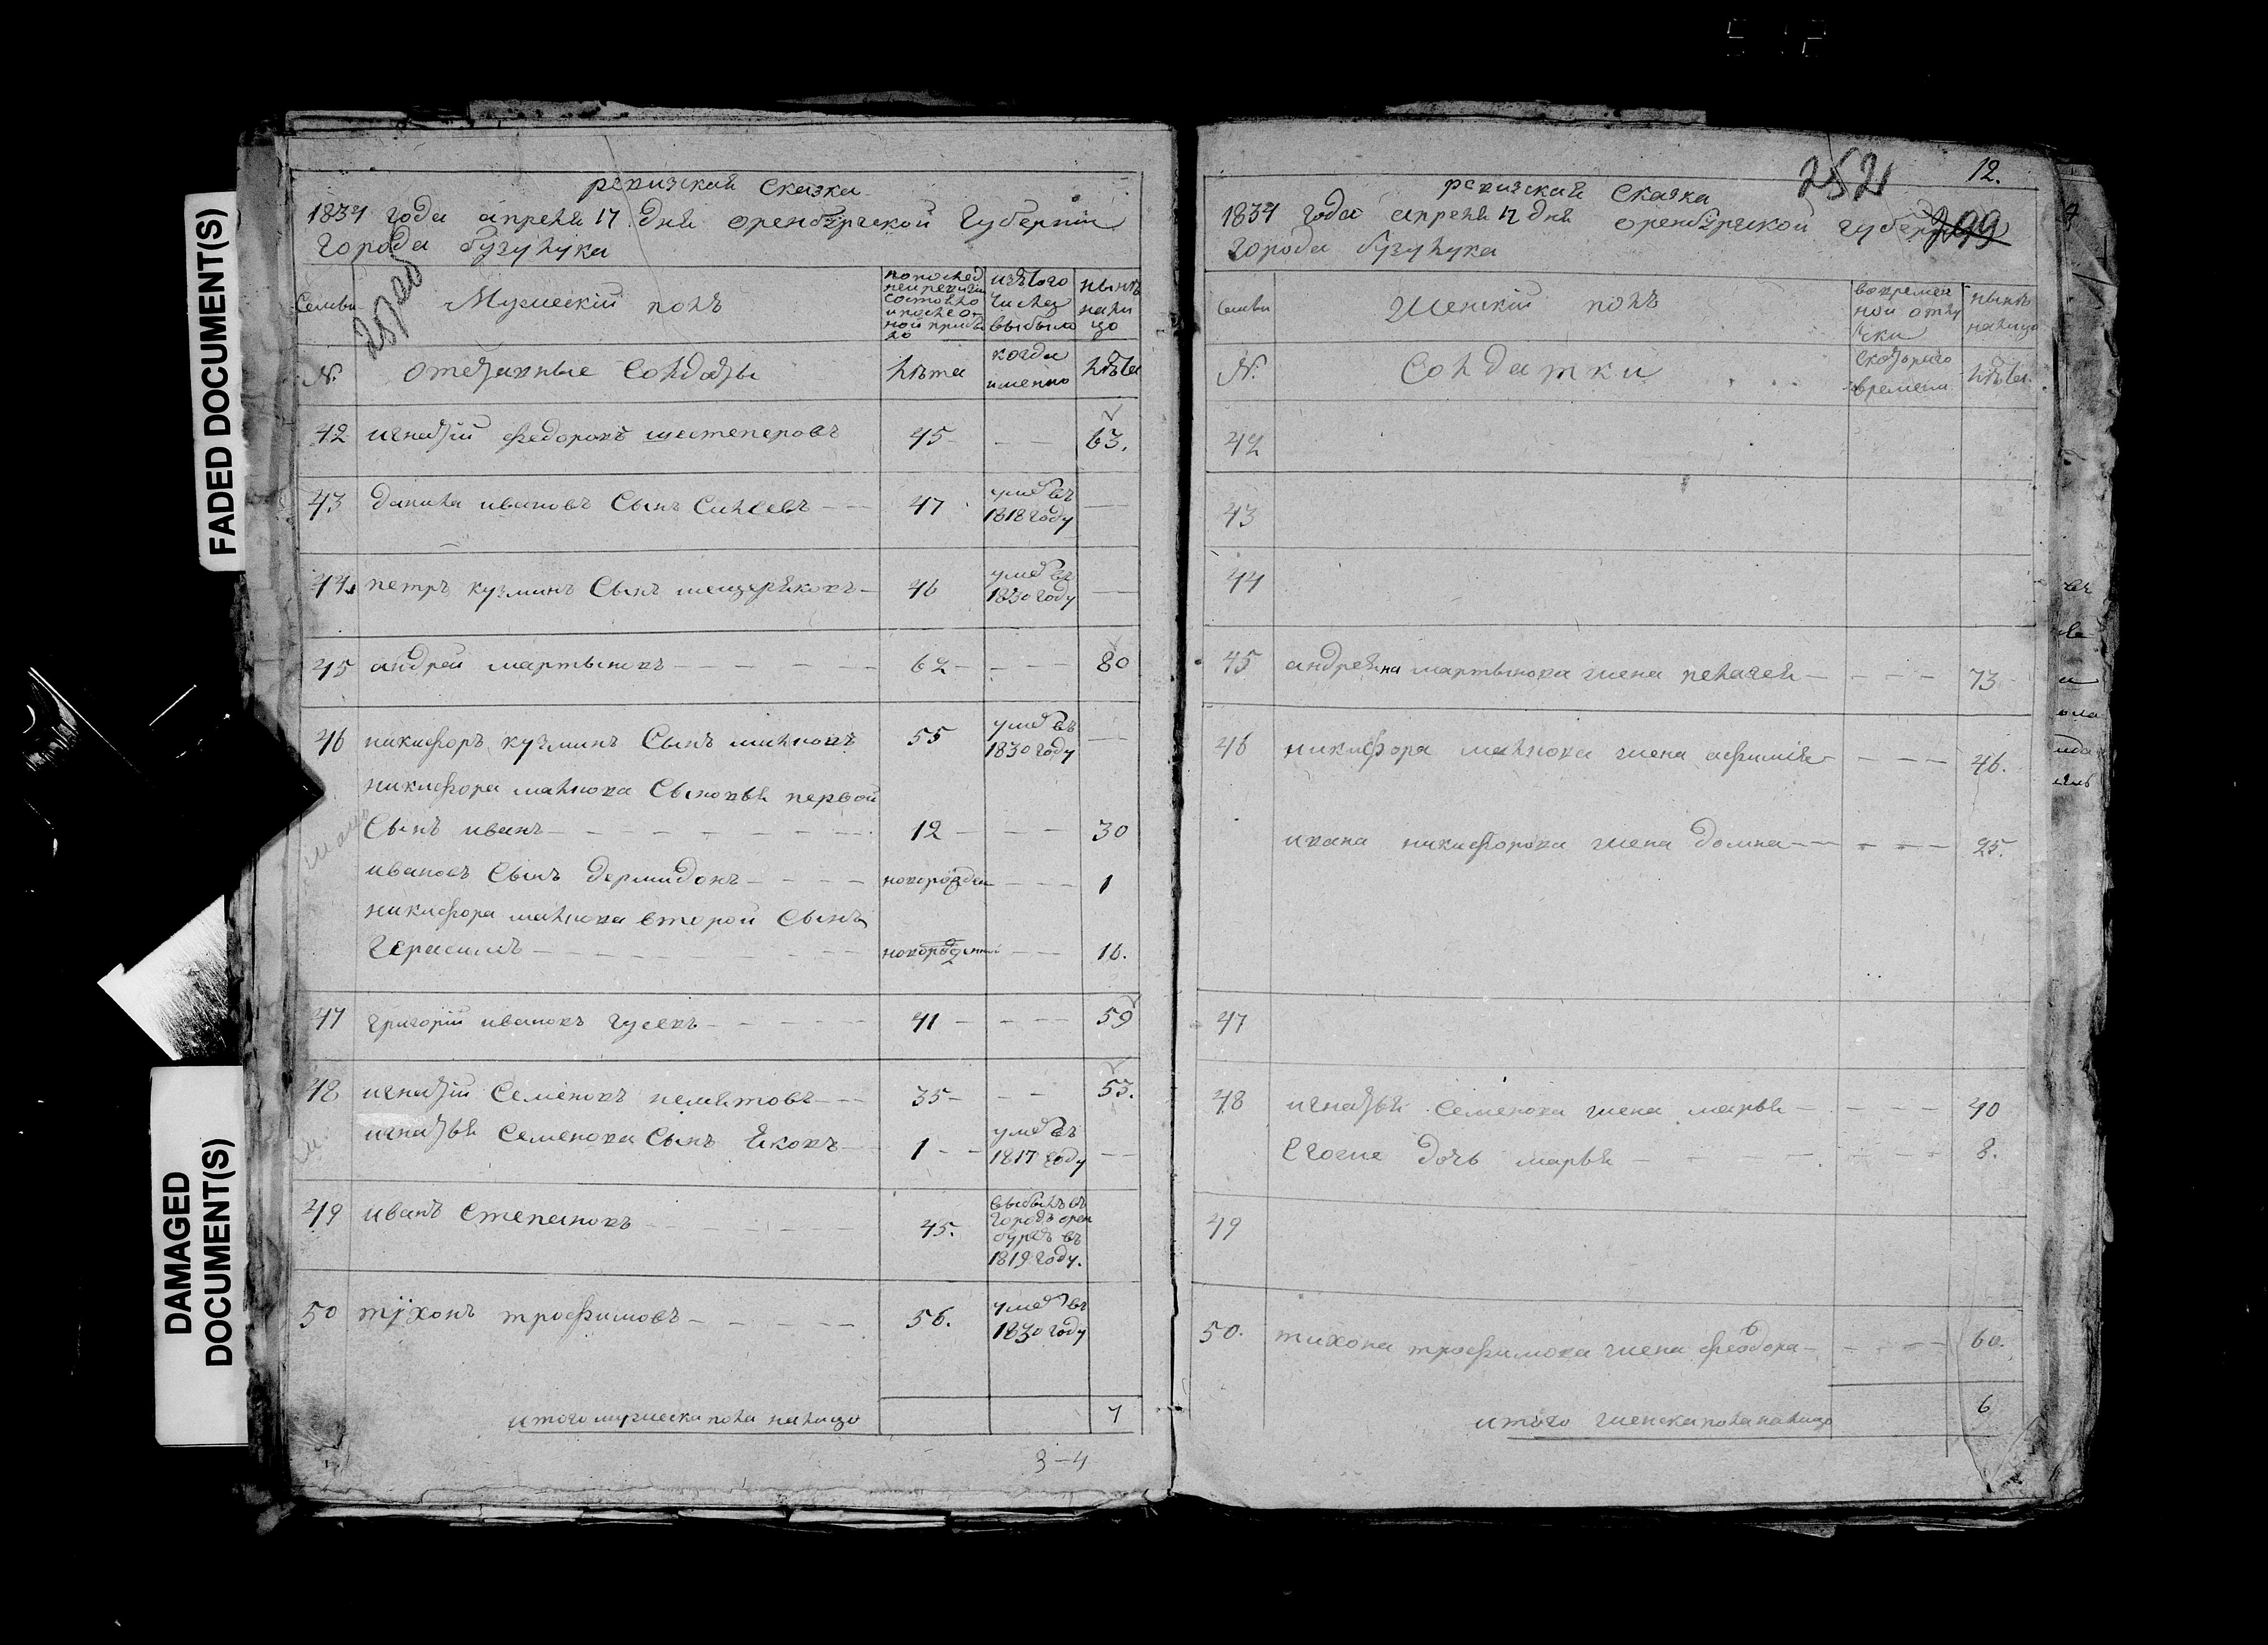 FADED DOCUMENT(S)
DAMAGED
DOCUMENT(S)
ревизская Сказка
1834 года апреля 17 дня оренбургской Губернии
города бугулука
Семьи
Мужескій полъ
по послед
ней ревизіи
состояло
и после о
ной прибы
ло
изъ того
числа
выбыло
нынѣ
нали
цо
№.
отставные Солдаты
лѣта
когда
именно
лѣта
42 игнатій федоровъ шестеперовъ 45 - - - 63.
43 данила ивановъ Сынъ Силеевъ - - 47 умеръ въ
1818 году
44. петръ кузминъ Сынъ мещеряковъ - 46 умеръ въ
1830 году
45 андрей мартыновъ - - - - 62 - - - - 80
46 никифоръ кузминъ Сынъ малковъ 55 умеръ въ
1830 году
никифора Сыновья первой
Сынъ иванъ - - - - - - - 12 - - - - 30
ивановъ Сынъ дермидонъ - - - - новорожден - - - 1
никифора второй Сынъ
Герасимъ - - - - - - - новорожденный - - 16.
47 григорій ивановъ гусевъ - - - - - 41 - - - - 59
48 игнатій Семеновъ - - - 35 - - - 53.
игнатья Семенова Сынъ Яковъ - 1 - - умеръ въ
1817 году
49 иванъ Степановъ - - - - 45. выбылъ въ
городъ орен
бургъ въ
1819 году.
50 тихонъ трофимовъ - - - - - 56. умеръ въ
1830 году
итого мужеска пола налицо 7
3-4
252
12.
ревизская Сказка
199
1834 года апреля 17 дня оренбургской губерніи
города бугулука
Семьи
Женскій полъ
во времен
ной отлу
чки
нынѣ
налицо
№.
Солдатки
Скоторого
времени
лѣта.
42
43
44
45 андреяна мартынова жена пелагея - - - - 73
46 никифора жена афимія - - - - 46.
ивана никифорова жена домна - - - - - 25.
47
48 игнатья Семенова жена марья - - - - - 40
Егоже дочь марья - - - - - - - 8.
49
50. тихона трофимова жена феодора - - - - - 60.
итого женска пола налицо 6